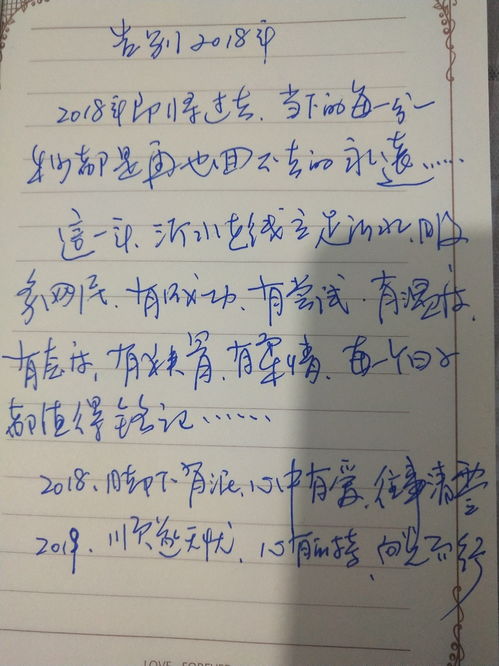 告别2018年
2018年即将过去，当下的每一分一
秒都是再也回不去的永远……
這一年，沂水在线立足沂水，服
务网民，有成功，有尝试，有温度，
有态度，有铁骨，有柔情，每一个日子
都值得铭记……
2018，脚下有泥，心中有爱，往事清零
2019，顺遂无忧，心有所持，向光而行
LOVE FOREVER